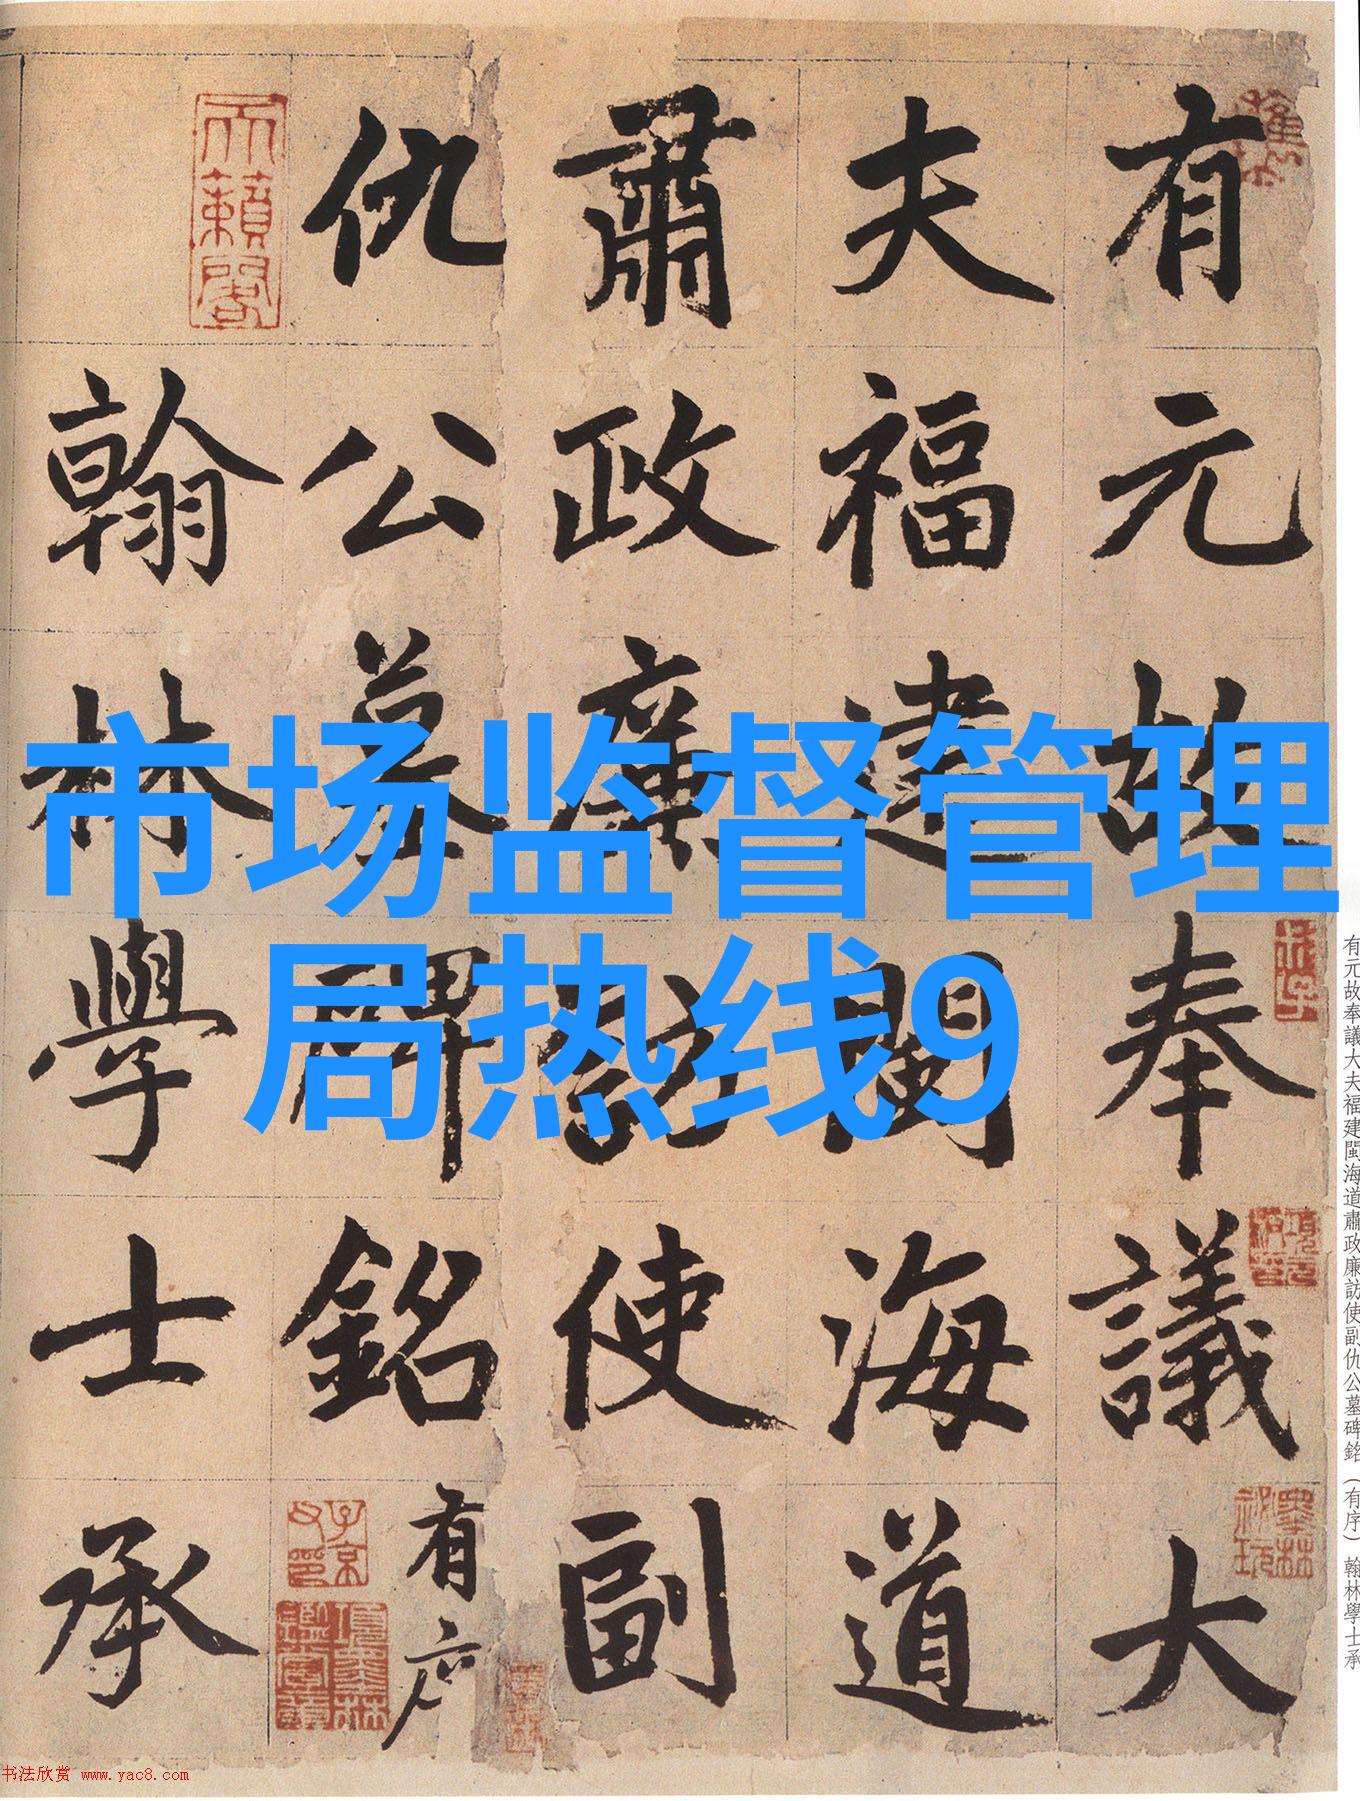 有元故奉議大
夫福建閩海道
肅政廉訪使副
仇公墓碑銘有序
翰林學士承
天籟閣
市场监督管理
局热线9
有元故奉議大夫福建閩海道肅政廉訪使副仇公墓碑銘（有序）翰林學士承
子京父印
项墨林鑑賞章
墨林祕玩
书法欣赏 www.yac8.com